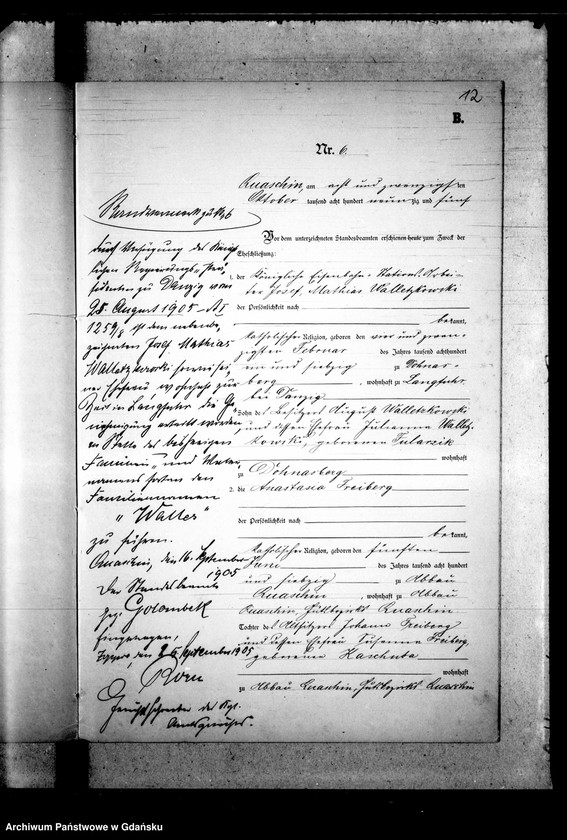 12
B.
Nr. 6
Quaschin, am acht und zwanzigsten
Oktober tausend acht hundert neunzig und fünf
Vor dem unterzeichneten Standesbeamten erschienen heute zum Zweck der
Eheschließung:
1. der Königliche Eisenbahn-Stations-Arbei-
ter Josef Mathias Walletzkowski
der Persönlichkeit nach
bekannt,
katholischer Religion, geboren den vier und zwan-
zigsten Februar des Jahres tausend achthundert
ein und siebzig zu Dohnas-
berg, wohnhaft zu Langfuhr
bei Danzig
Sohn des Besitzers August Walletzkowski
und dessen Ehefrau Julianna Walletz-
kowski, geborenen
wohnhaft
zu Dohnasberg
2. die Anastasia Freiberg
der Persönlichkeit nach
bekannt,
katholischer Religion, geboren den fünften
Juni des Jahres tausend acht hundert
und siebzig zu Abbau
Quaschin, wohnhaft zu Abbau
Quaschin, Gutsbezirks Quaschin
Tochter des Altsitzers Johann Freiberg
und dessen Ehefrau Susanna Freiberg,
geborenen Kaschuta
wohnhaft
zu Abbau Quaschin, Gutsbezirks Quaschin
Randvermerk zu Nr. 6
Durch Verfügung des König-
lichen Regierungs-Prä-
sidenten zu Danzig vom
25. August 1905
ist dem neben be-
zeichneten Josef Mathias
Walletzkowski
zur
Zeit in Langfuhr die Ge-
nehmigung erteilt worden
an Stelle des bisherigen
Familien-
namens fortan den
Familiennamen
„Walter"
zu führen.
Quaschin, den 16. September
1905
Der Standesbeamte
gez. Golombek
Eingetragen,
Zoppot, den 26. September 1905
Gerichtsschreiber des Kgl.
Amtsgerichts.
Archiwum Państwowe w Gdańsku